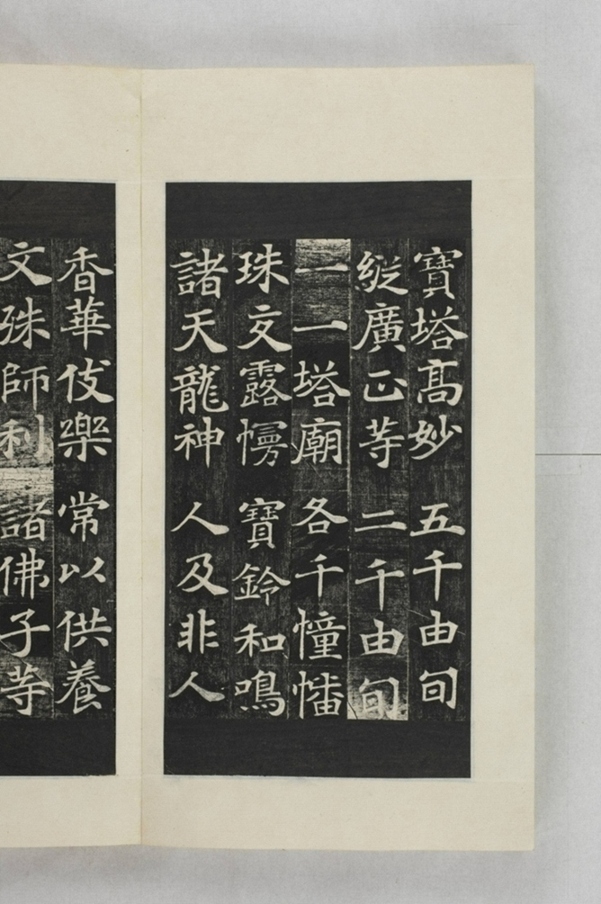 寶塔高妙 五千由旬
縱廣正等 二千由旬
一一塔廟 各千幢幡
珠交露幔 寶鈴和鳴
諸天龍神 人及非人
香華伎樂 常以供養
文殊師利 諸佛子等